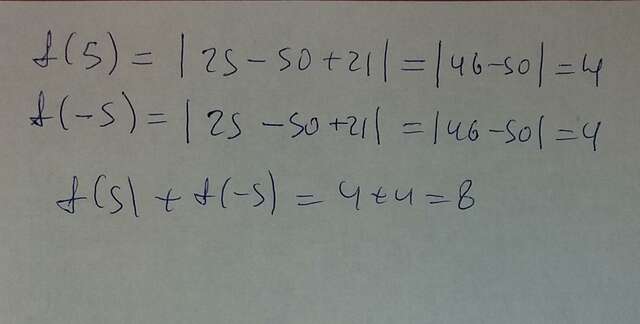 f(5) = |25-50+21| = |46-50| = 4
f(-5) = |25-50+21| = |46-50| = 4
f(5) + f(-5) = 4+4=8